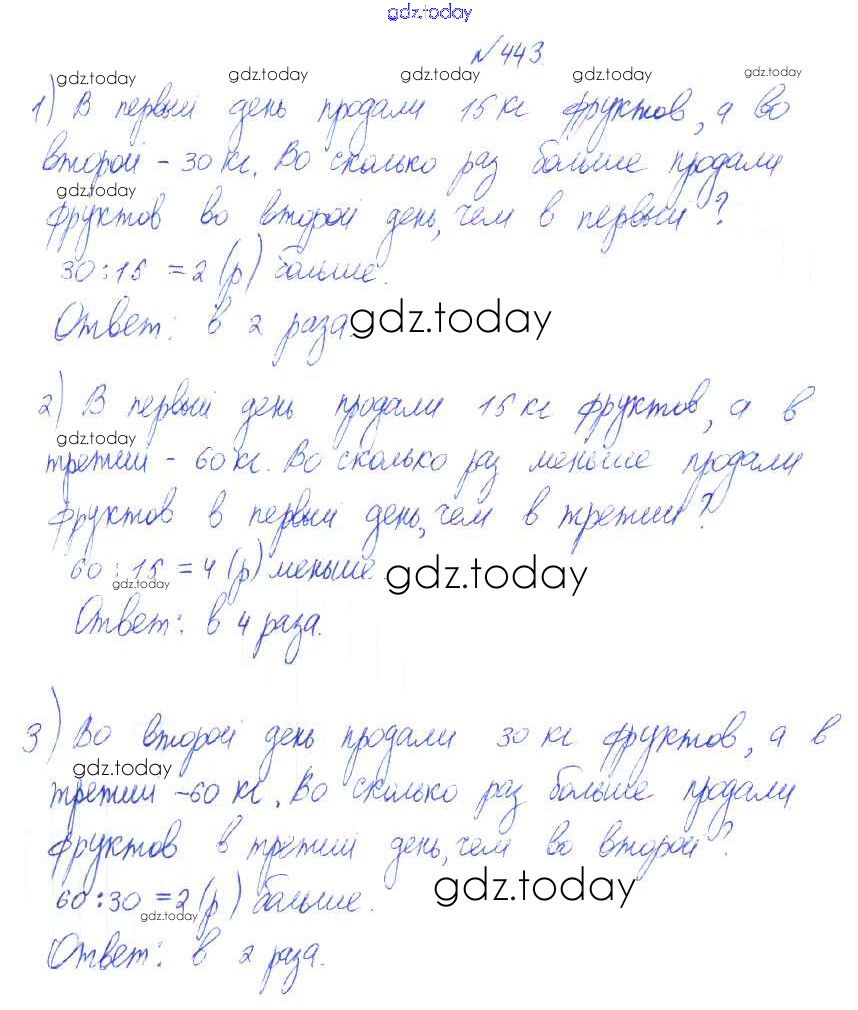 gdz.today
№443.
gdz.today gdz.today gdz.today gdz.today gdz.today
1) В первый день продали 15 кг фруктов, а во
второй - 30 кг. Во сколько раз больше продали
gdz.today
фруктов во второй день, чем в первый?
30:15 = 2 (р) больше.
Ответ: в 2 раза.
gdz.today
2) В первый день продали 15 кг фруктов, а в
gdz.today
третий - 60 кг. Во сколько раз меньше продали
фруктов в первый день, чем в третий?
60:15 = 4 (р) меньше.
gdz.today
gdz.today
Ответ: в 4 раза.
3) Во второй день продали 30 кг фруктов, а в
gdz.today
третий - 60 кг. Во сколько раз больше продали
фруктов в третий день, чем во второй?
60:30 = 2 (р) больше.
gdz.today
gdz.today
Ответ: в 2 раза.